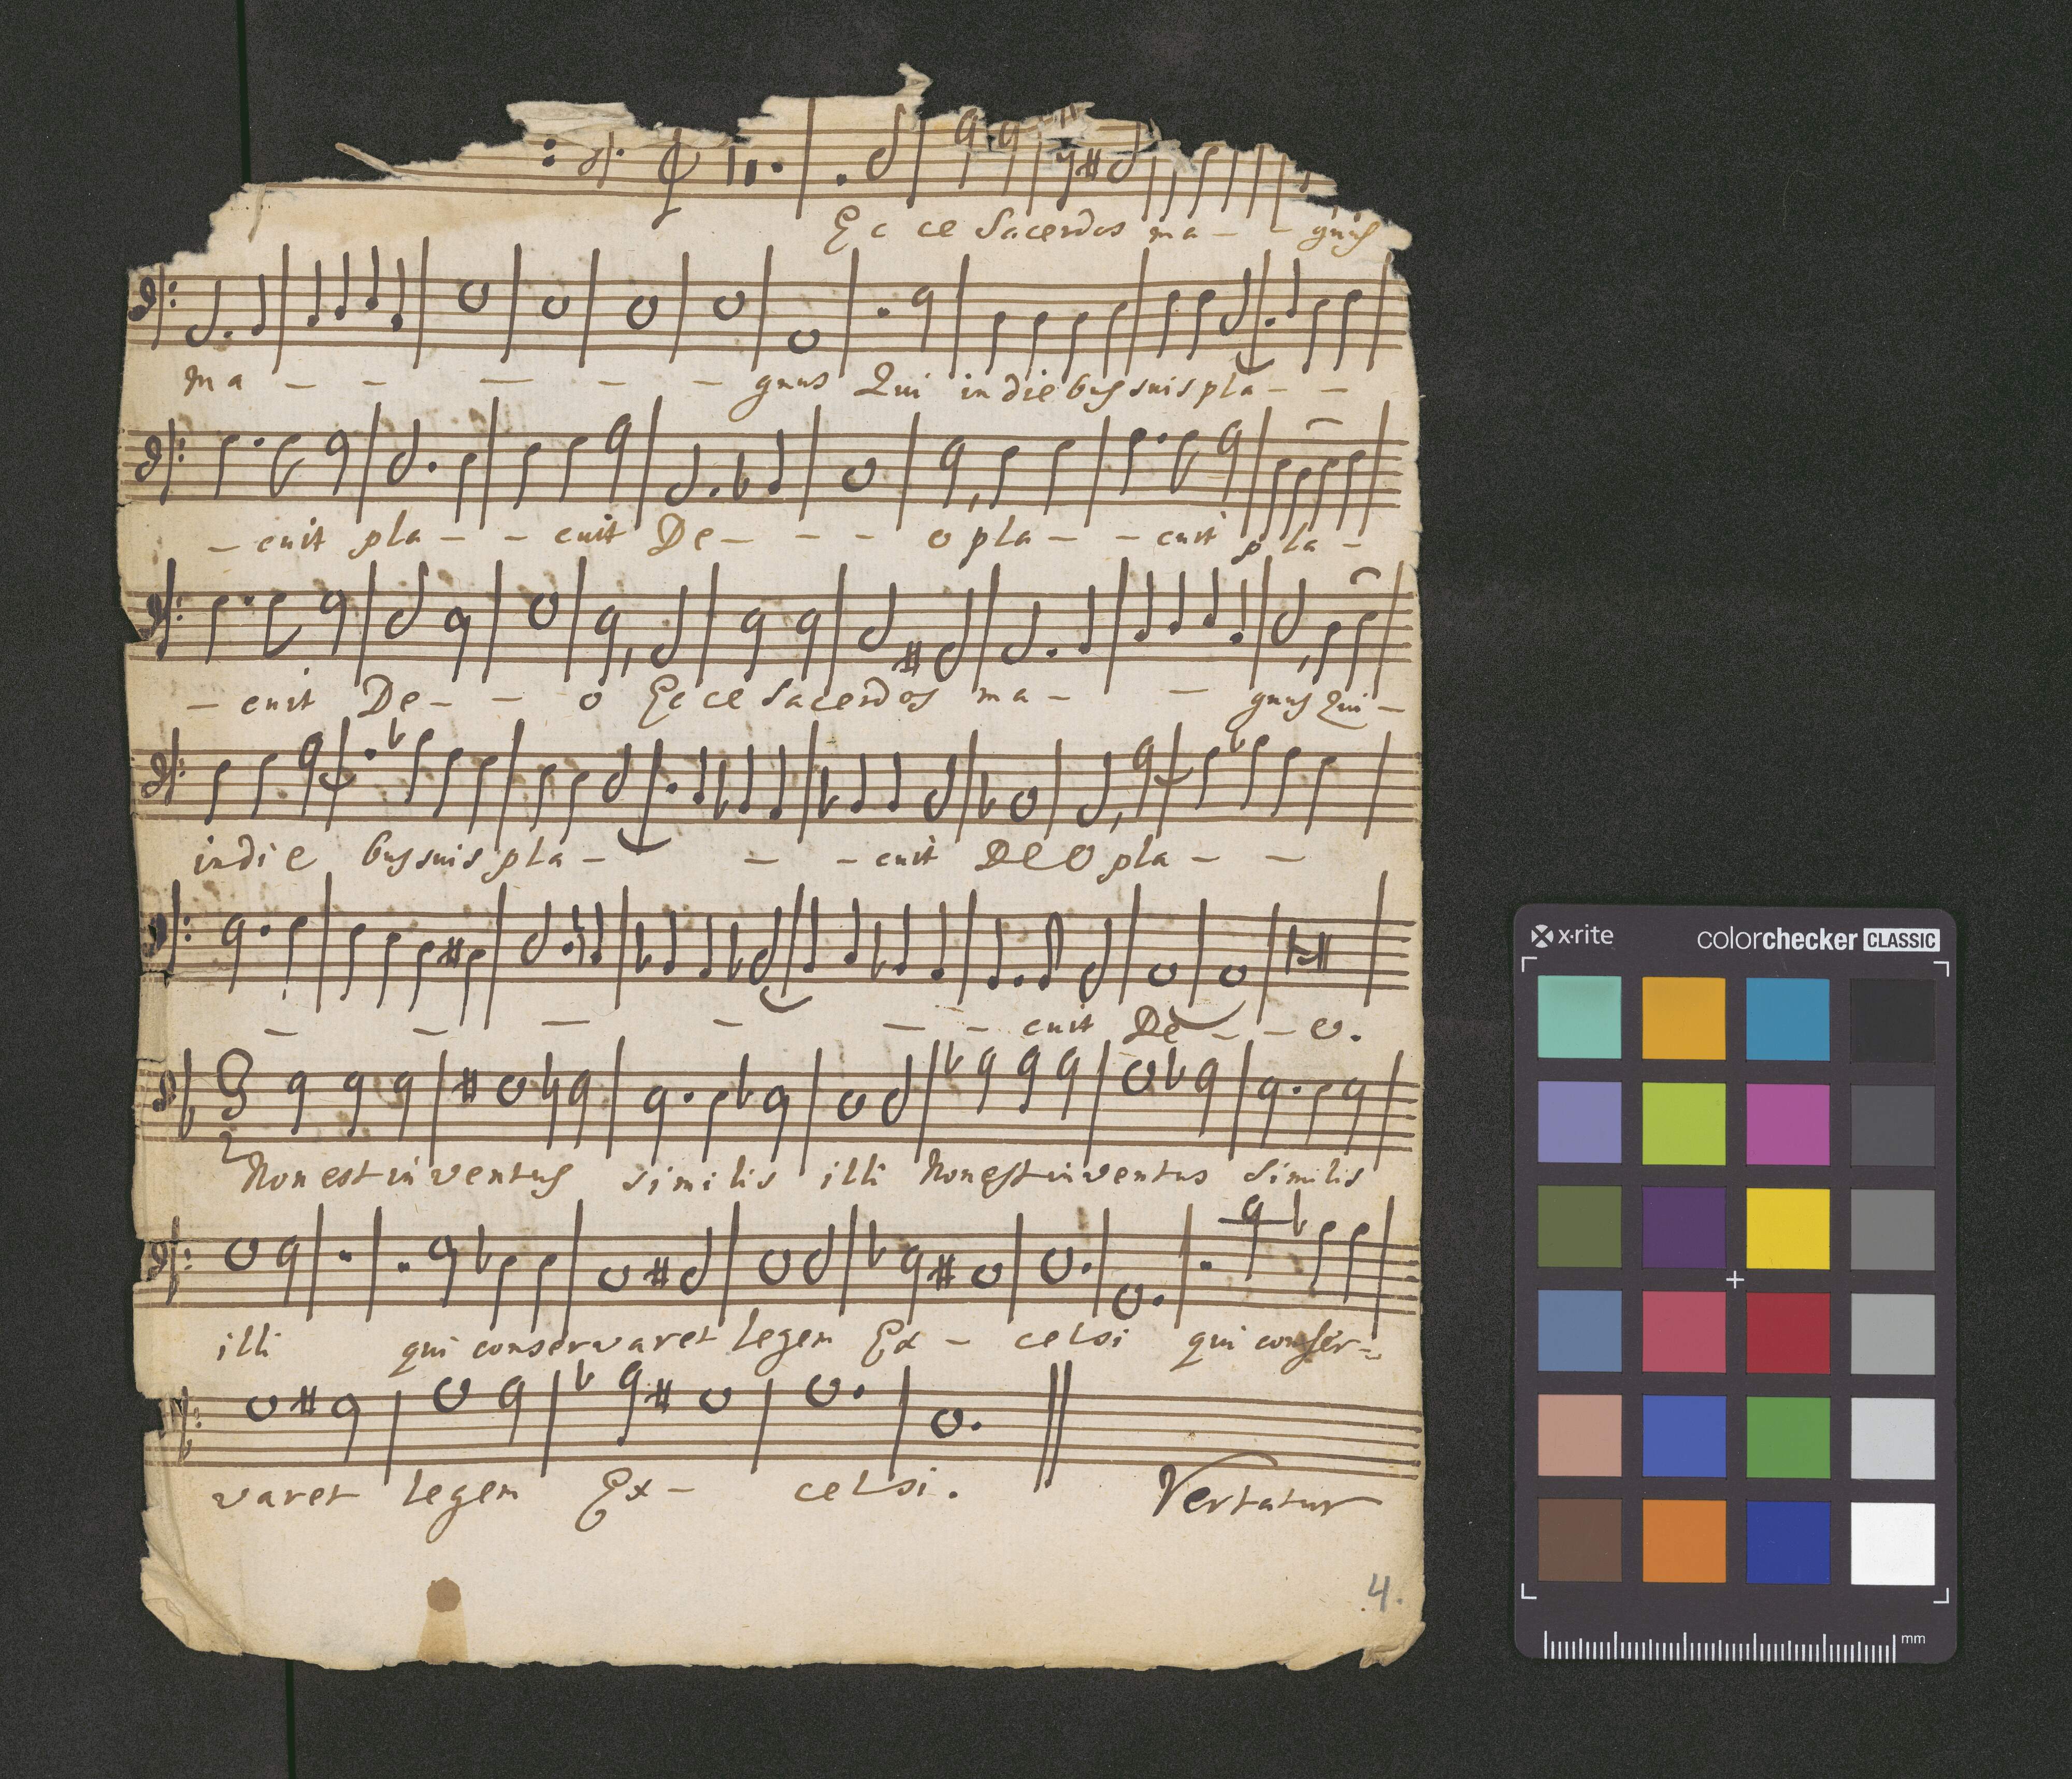 Ec ce Sacerdos ma - - gnus
ma - - - - - gnus Qui in die bus suis pla - -
- cuit pla - - cuit De - - - o pla - - cuit pla -
- cuit De - - o Ec ce Sacerdos ma - - gnus Qui -
in die bus suis pla - - - cuit DEO pla - -
- - - - - - cuit De - - o.
3
2
Non est in ventus similis illi Non est in ventus Similis
illi qui conservaret legem Ex - celsi qui conser-
varet legem Ex - celsi.
Vertatur
4.
x-rite
colorchecker CLASSIC
mm